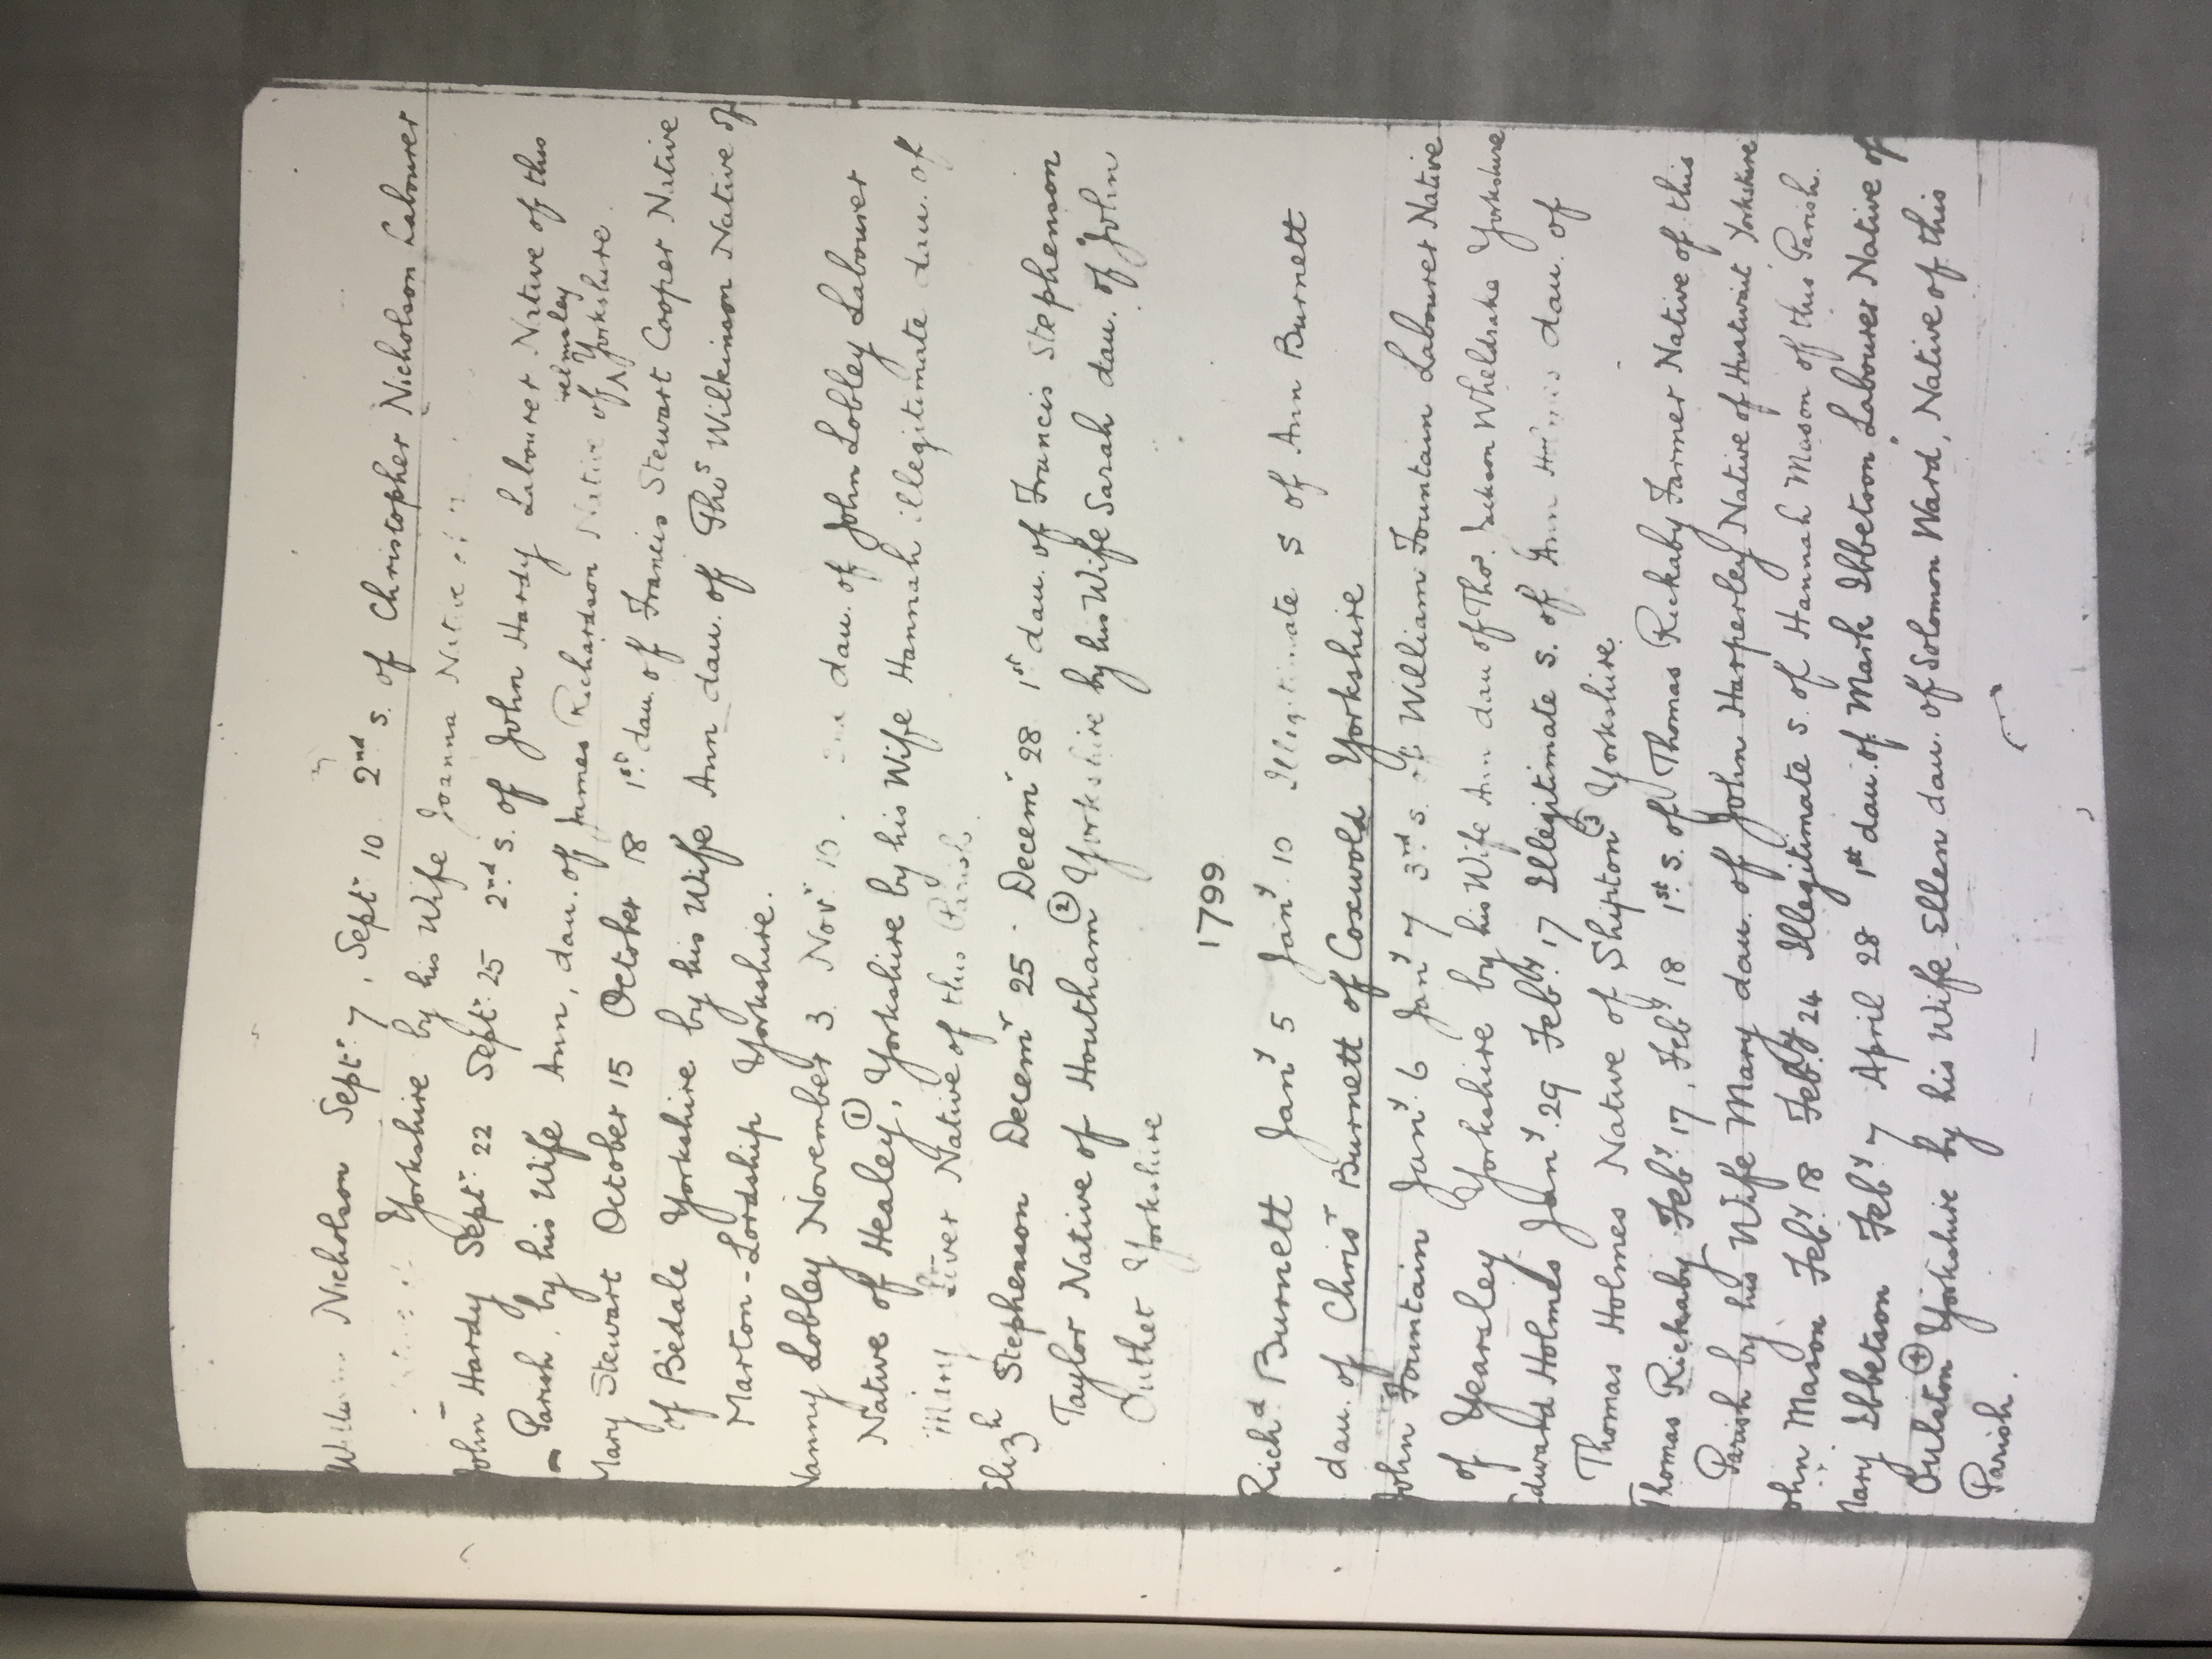 Nicholson Septr. 7, Septr. 10 2nd s. of Christopher Nicholson Labourer
Yorkshire by his Wife Joanna Native of
John Hardy Septr. 22 Septr. 25 2nd s. of John Hardy Labourer Native of this
Parish, by his Wife Ann, dau. of James Richardson Native of Yorkshire.
Mary Stewart October 15 October 18 1st dau. of Francis Stewart Cooper Native
of Bedale Yorkshire by his Wife Ann dau. of Thos Wilkinson Native of
Marton-Lordship Yorkshire.
Nanny Lobley November 3. Novr 10. 2nd dau. of John Lobley Labourer
Native of Healey ①, Yorkshire by his Wife Hannah illegitimate dau. of
Native of this Parish.
Elizh Stephenson Decemr 25. Decemr 28 1st dau. of Francis Stephenson
Taylor Native of Houtham ② Yorkshire by his Wife Sarah dau. of John
Outhet Yorkshire
1799
Richd Burnett Jany 5 Jany. 10 Illegitimate s of Ann Burnett
dau. of Chrisr Burnett of Coxwold Yorkshire
John Fountain Jany. 6 Jany 7 3rd s. of William Fountain Labourer Native
of Yearsley Yorkshire by his Wife Ann dau of Thos. Wheldrake Yorkshire
Edward Holmes Jany. 29 Feby. 17 Illegitimate s. of Ann dau. of
Thomas Holmes Native of Shipton ③ Yorkshire.
Thomas Rickaby Feby. 17, Feby 18 1st s. of Thomas Rickaby Farmer Native of this
Parish by his Wife Mary dau. of John Harperley Native of Yorkshire
John Mason Feby. 18 Feby. 24 Illegitimate s. of Hannah Mason of this Parish.
Mary Ibbetson Feby 7 April 28 1st dau. of Mark Ibbetson Labourer Native of
Oulston ④ Yorkshire by his Wife Ellen dau. of Solomon Ward, Native of this
Parish.